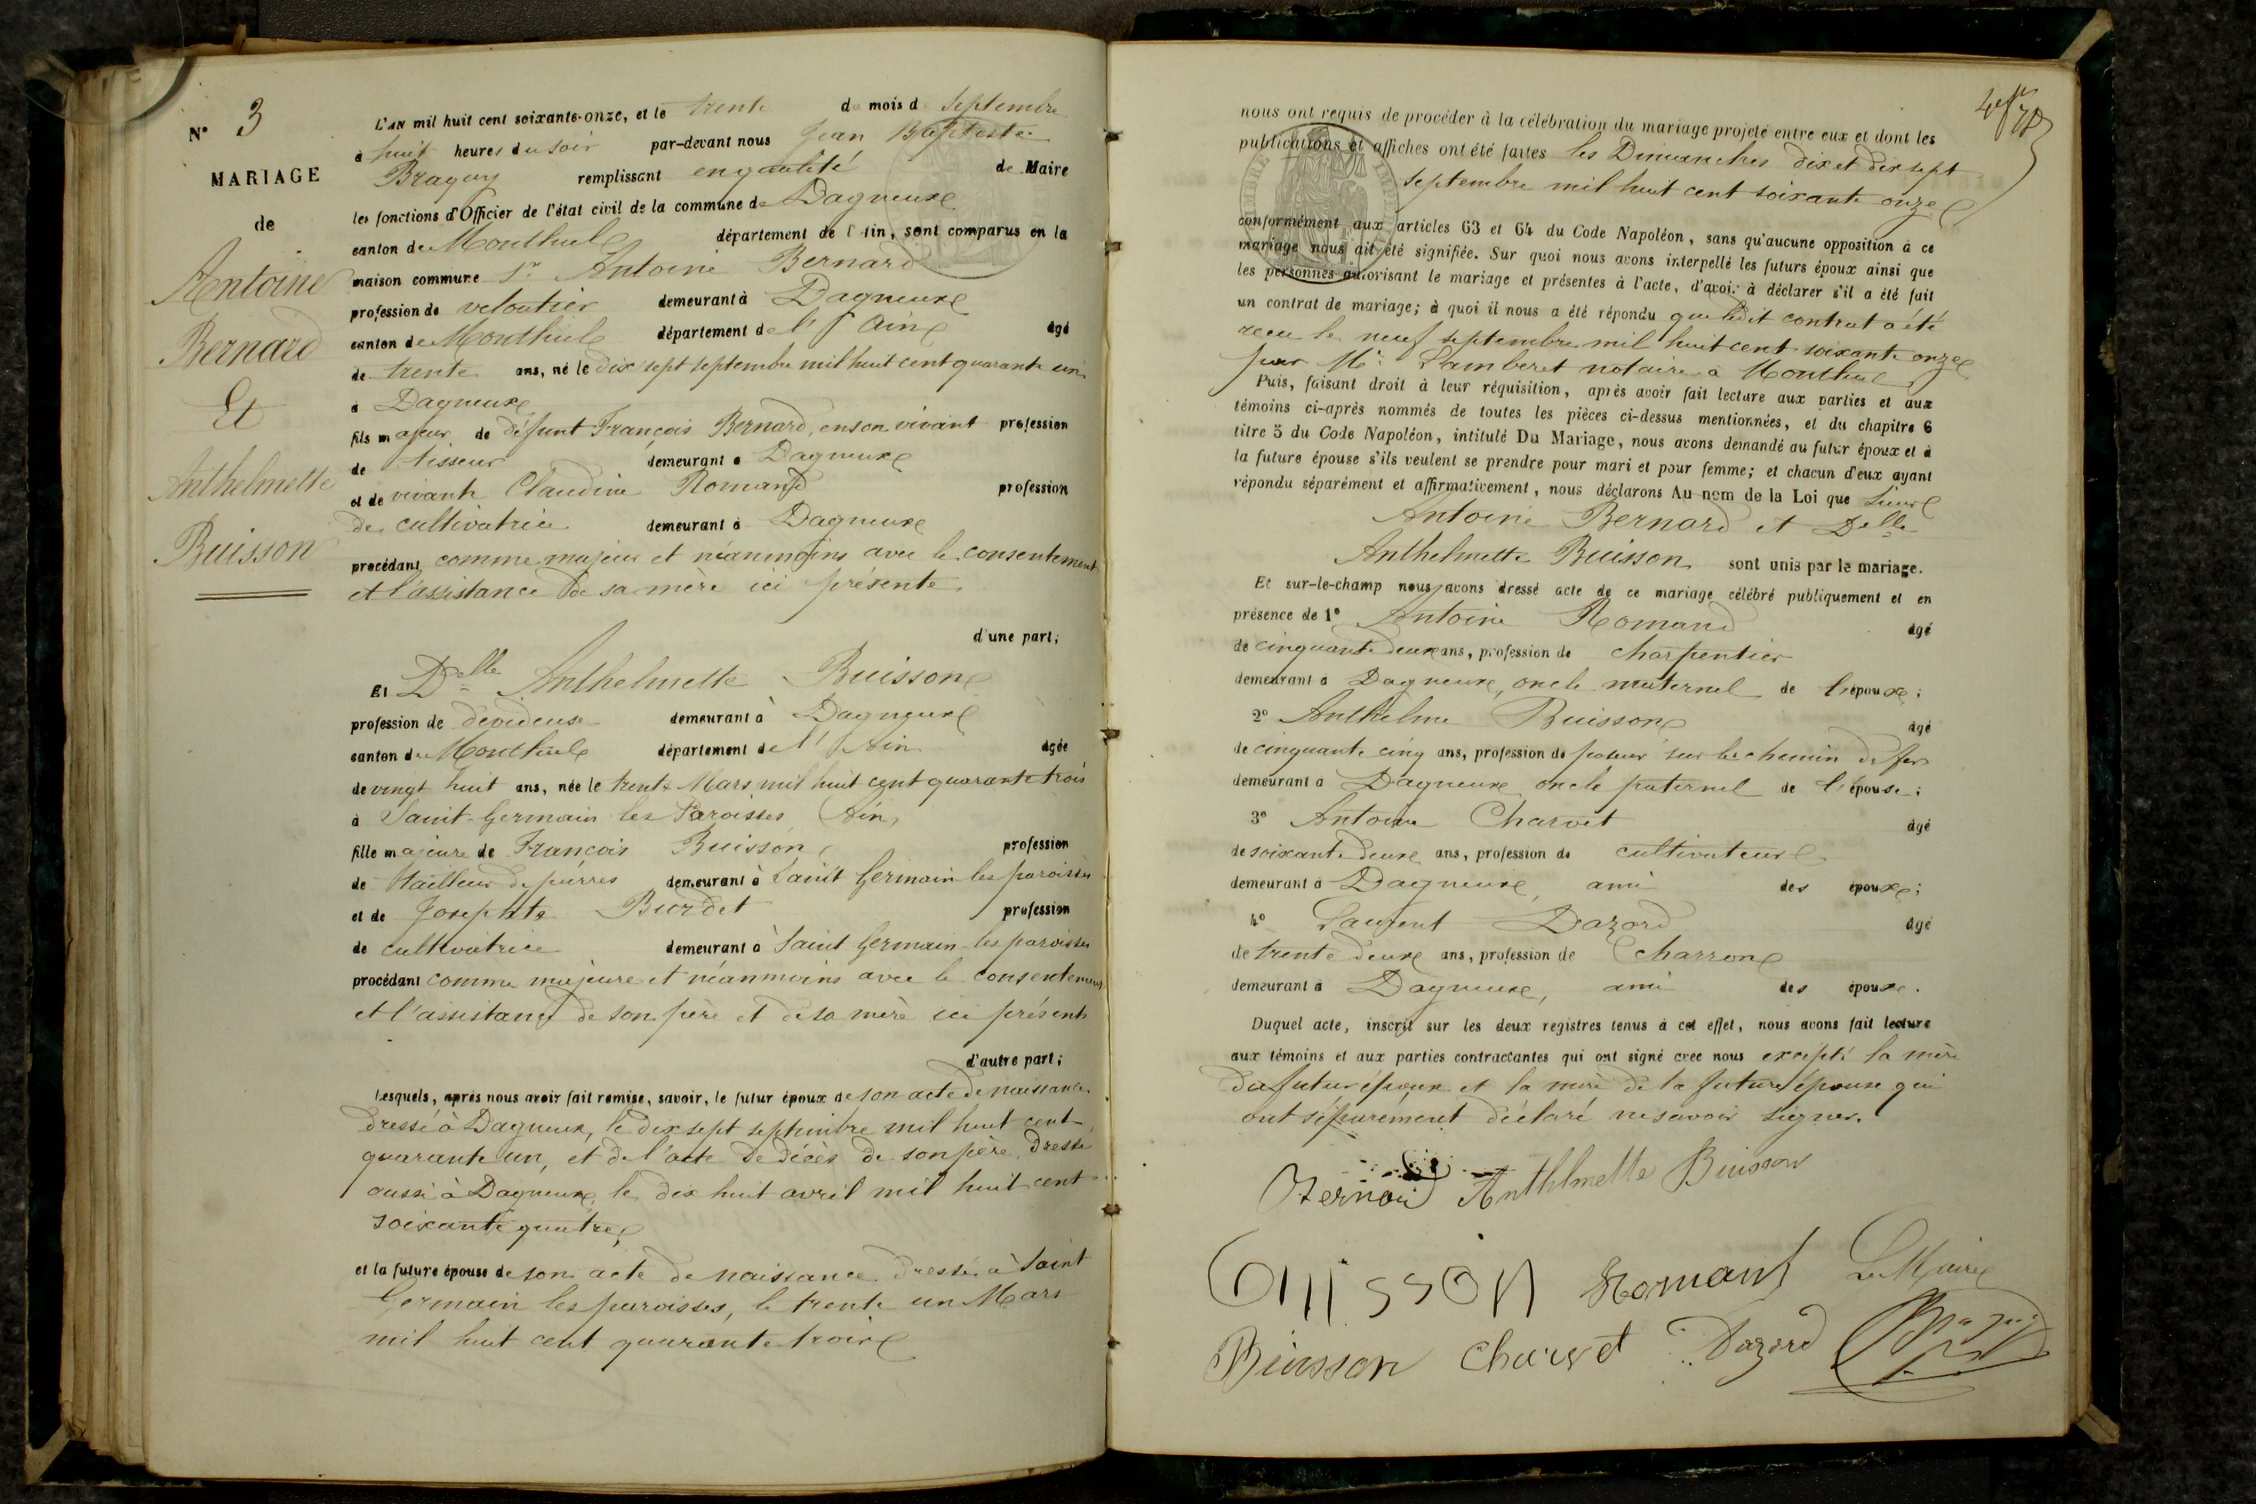 N° 3
MARIAGE
de
Antoine
Bernard
Et
Anthelmette
Buisson
L'AN mil huit cent soixante-onze, et le trente du mois d Septembre
à huit heures du soir par-devant nous Jean Baptiste
Braguy remplissant en qualité de Maire
les fonctions d'Officier de l'état civil de la commune de Dagneux
canton de Montluel département de l'Ain, sont comparus en la
maison commune Sr Antoine Bernard
profession de veloutier demeurant à Dagneux
canton de Montluel département de l'Ain âgé
de trente ans, né le dix sept septembre mil huit cent quarante un
à Dagneux
fils majeur de défunt François Bernard, en son vivant profession
de tisseur demeurant à Dagneux
et de vivante Claudine Romand profession
de cultivatrice demeurant à Dagneux
procédant comme majeur et néanmoins avec le consentement
et l'assistance de sa mère ici présente
d'une part;
Et Delle Anthelmette Buisson
profession de dévideuse demeurant à Dagneux
canton de Montluel département de l'Ain âgée
de vingt huit ans, née le trente Mars mil huit cent quarante trois
à Saint-Germain les Paroisses, Ain,
fille majeure de François Buisson profession
de tailleur de pierres demeurant à Saint Germain les paroisses
et de Josephte Burdet profession
de cultivatrice demeurant à Saint Germain les paroisses
procédant comme majeure et néanmoins avec le consentement
et l'assistance de son père et de sa mère ici présents
d'autre part;
Lesquels, après nous avoir fait remise, savoir, le futur époux de son acte de naissance
dressé à Dagneux, le dix sept septembre mil huit cent
quarante un, et de l'acte de décès de son père, dressé
aussi à Dagneux, le dix huit avril mil huit cent
soixante quatre
et la future épouse de son acte de naissance dressé à Saint
Germain les paroisses, le trente un Mars
mil huit cent quarante trois
nous ont requis de procéder à la célébration du mariage projeté entre eux et dont les
publications et affiches ont été faites les Dimanches dix et dix sept
septembre mil huit cent soixante onze
conformément aux articles 63 et 64 du Code Napoléon, sans qu'aucune opposition à ce
mariage nous ait été signifiée. Sur quoi nous avons interpellé les futurs époux ainsi que
les personnes autorisant le mariage et présentes à l'acte, d'avoir à déclarer s'il a été fait
un contrat de mariage; à quoi il nous a été répondu que ledit contrat a été
recu le neuf septembre mil huit cent soixante onze
par Me Lamberet notaire à Montluel
Puis, faisant droit à leur réquisition, après avoir fait lecture aux parties et aux
témoins ci-après nommés de toutes les pièces ci-dessus mentionnées, et du chapitre 6
titre 5 du Code Napoléon, intitulé Du Mariage, nous avons demandé au futur époux et à
la future épouse s'ils veulent se prendre pour mari et pour femme; et chacun d'eux ayant
répondu séparément et affirmativement, nous déclarons Au nom de la Loi que Sieur
Antoine Bernard et Delle
Anthelmette Buisson sont unis par le mariage.
Et sur-le-champ nous avons dressé acte de ce mariage célébré publiquement et en
présence de 1° Antoine Romand âgé
de cinquante deux ans, profession de charpentier
demeurant à Dagneux, oncle maternel de l'époux;
2° Anthelme Buisson âgé
de cinquante cinq ans, profession de poseur sur le chemin de fer
demeurant à Dagneux oncle paternel de l'épouse;
3° Antoine Charvet âgé
de soixante deux ans, profession de cultivateur
demeurant à Dagneux, ami des époux;
4° Laurent Dazord âgé
de trente deux ans, profession de charron
demeurant à Dagneux, ami des époux.
Duquel acte, inscrit sur les deux registres tenus à cet effet, nous avons fait lecture
aux témoins et aux parties contractantes qui ont signé avec nous excepté la mère
du futur époux et la mère de la future épouse qui
ont séparément déclaré ne savoir signer.
Bernard Anthelmette Buisson
Buisson Romand Le Maire
Buisson Charvet Dazord Braguy